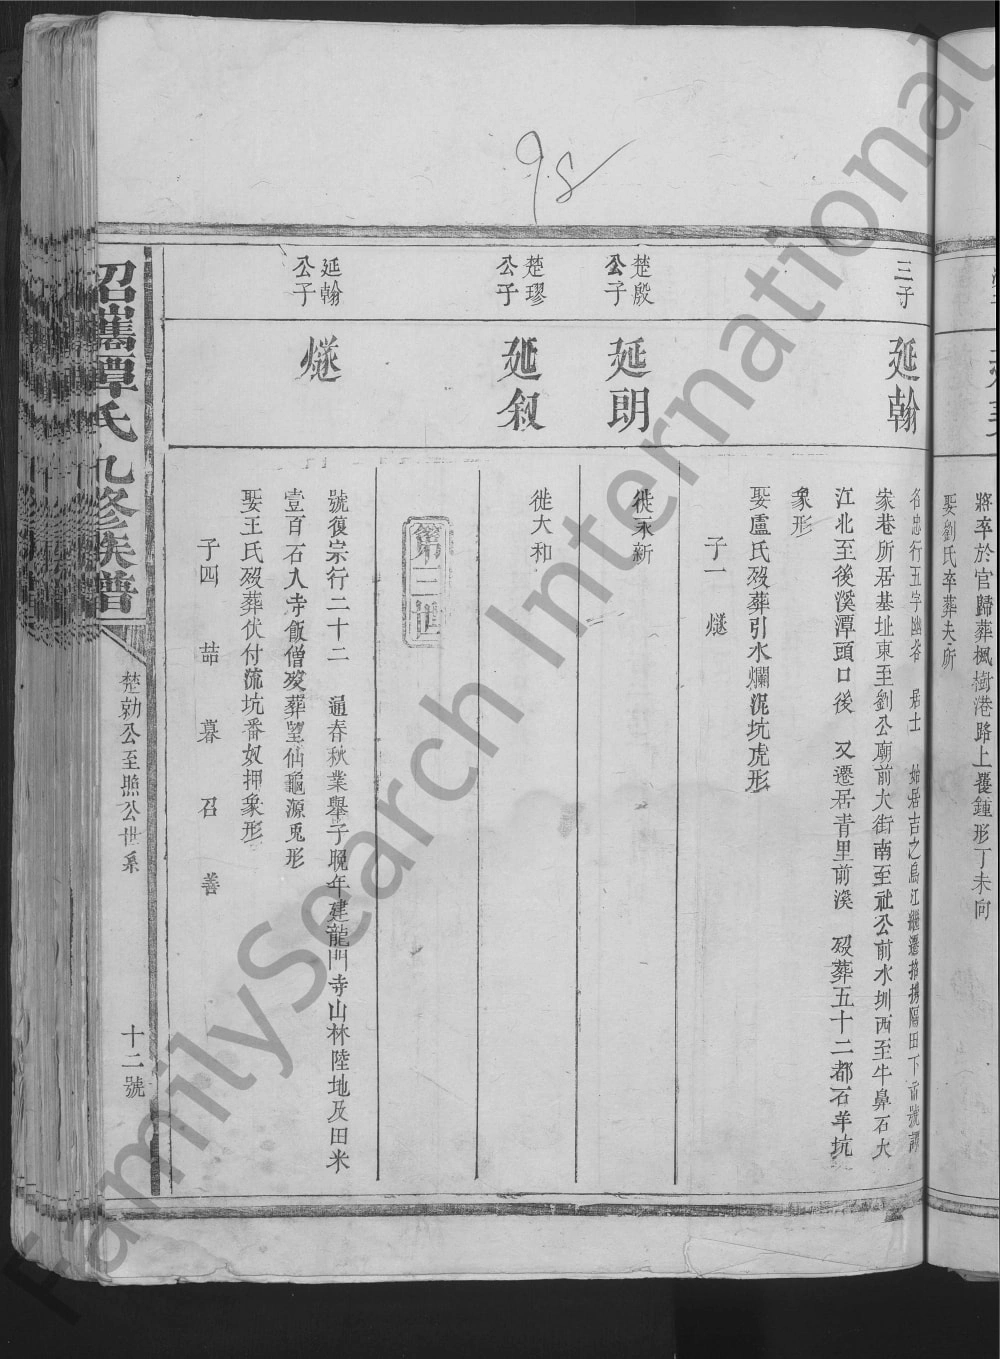 98
將卒於官歸葬楓樹港路上覆鍾形丁未向
娶劉氏卒葬夫所
三子
延翰
名忠行五字幽谷 居士 始居吉之烏江繼遷招攜隔田下市號譚
家巷所居基址東至劉公廟前大街南至社公前水圳西至牛鼻石大
江北至後溪潭頭口後 又遷居青里前溪 歿葬五十二都石羊坑
象形
娶盧氏歿葬引水爛泥坑虎形
子一 燧
楚殷公子
延朗
徙永新
楚璆公子
延叙
徙大和
第三世
延翰公子
燧
號復宗行二十二 通春秋業舉子晚年建龍門寺山林陸地及田米
壹百石入寺飯僧歿葬望仙龜源兎形
娶王氏歿葬伏付流坑番奴押象形
子四 喆 暮 召 善
招攜譚氏九修族譜
楚勑公至照公世系
十二號
FamilySearch International